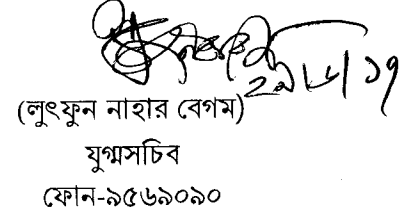 ২৯/৮/১৭
(লুৎফুন নাহার বেগম)
যুগ্মসচিব
ফোন-৯৫৬৯০৯০